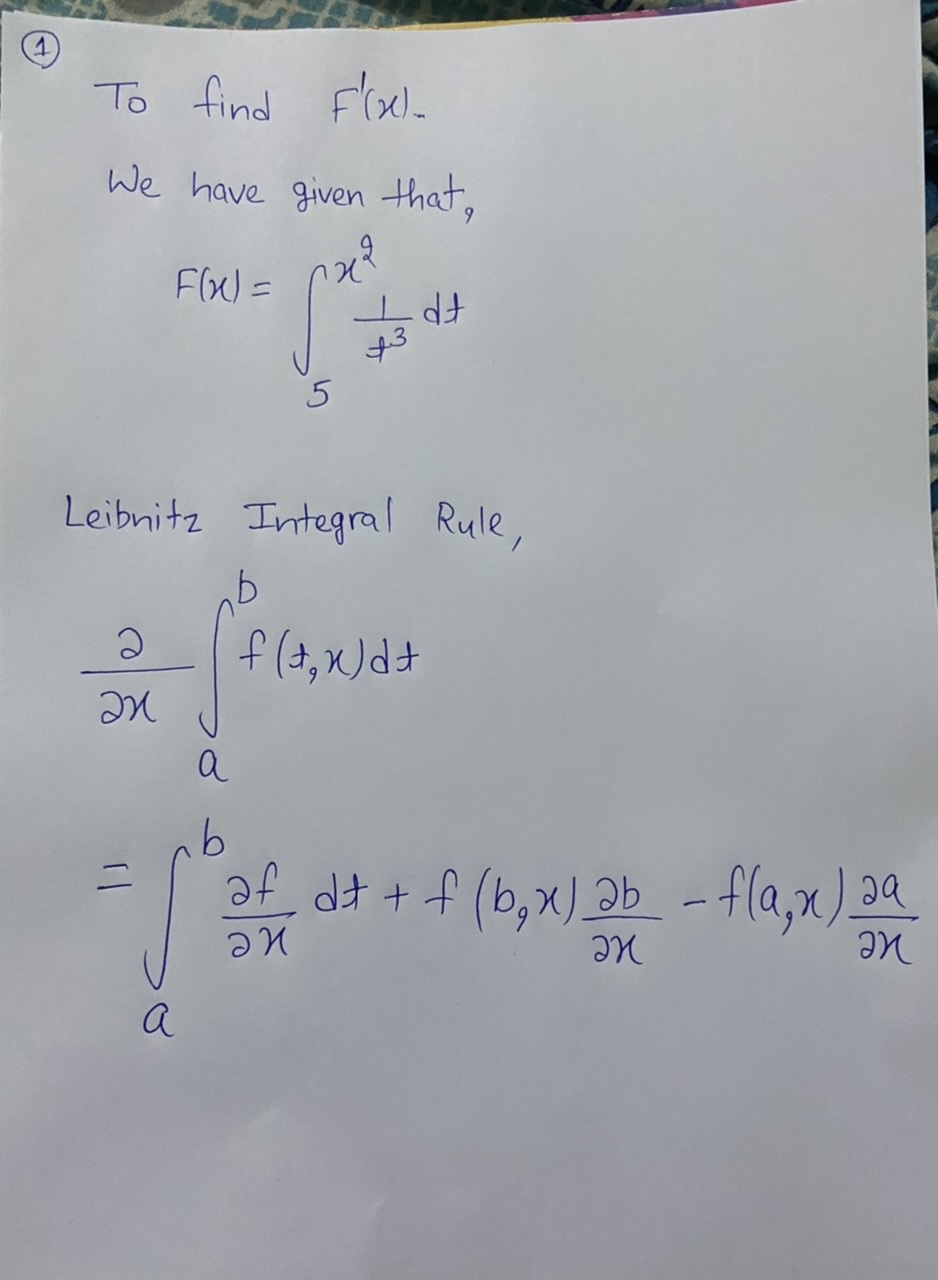 ①
To find F'(x).
We have given that,
F(x) = ∫_5^{x^2} 1/t^3 dt
Leibnitz Integral Rule,
∂/∂x ∫_a^b f(t,x)dt
= ∫_a^b ∂f/∂x dt + f(b,x) ∂b/∂x - f(a,x) ∂a/∂x